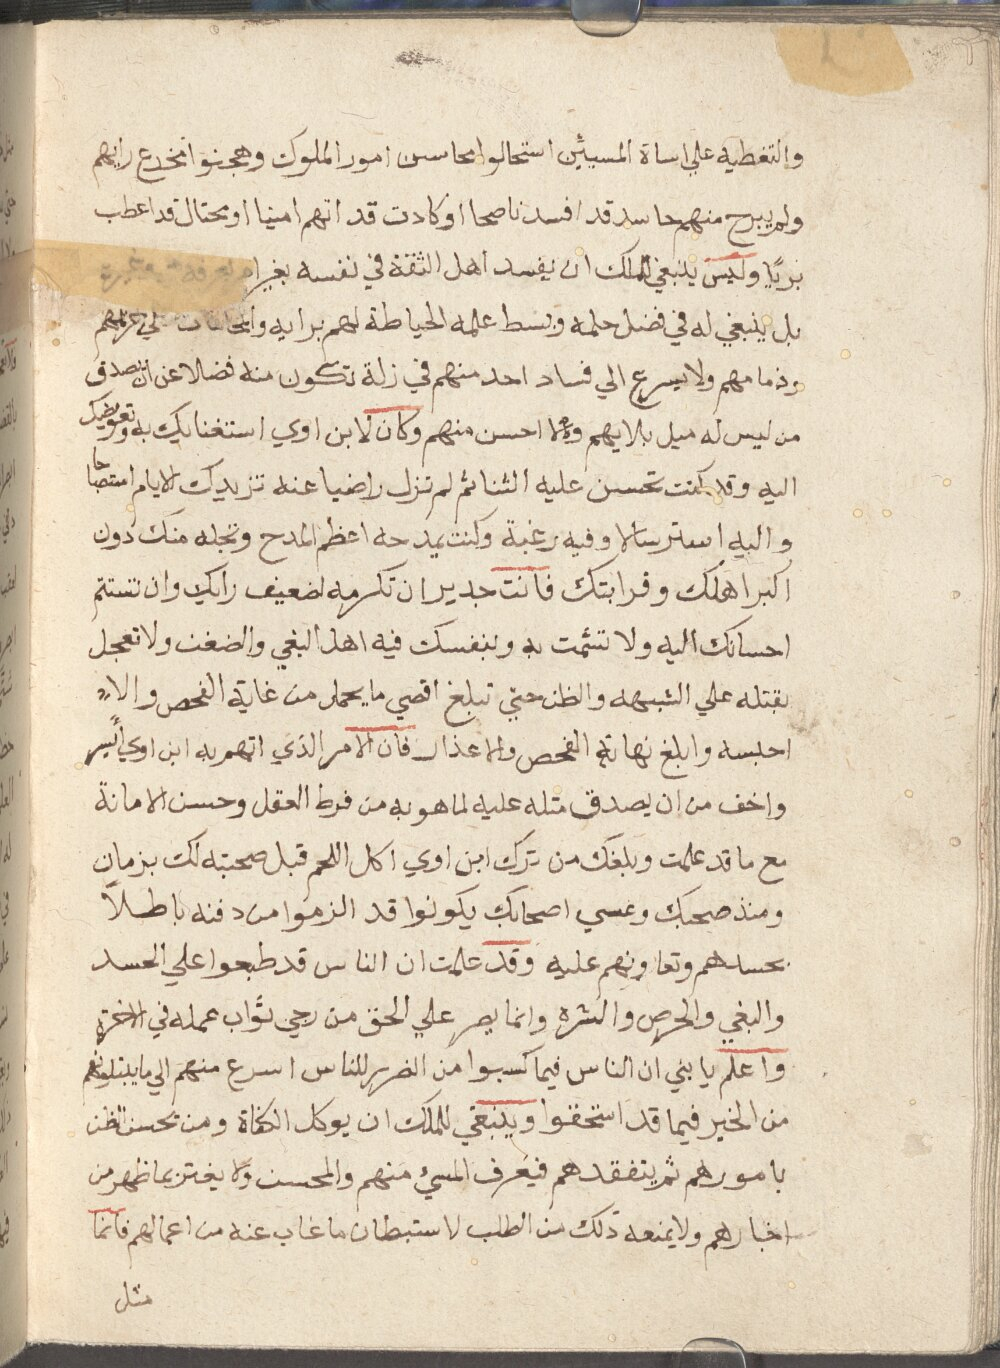 والتغطيه علي اساة المسيئين استحالوا محاسن امور الملوك وهجنوا رايهم
ولم يبرح منهم حاسد قد افسد ناصحا او كادت قد اتهم امينا او محتال قد اعطب
بريًا وليس ينبغي للملك ان يفسد اهل الثقة في نفسه بغير
بل ينبغي له في فضل حلمه وبسط علمه الحياطة لهم برايه
وذمامهم ولا يسرع الي فساد احد منهم في زلة تكون منه فضلا عن ان يصدق
من ليس له ميل بلايهم ولا احسن منهم وكان لابن اوي استغنايك به وتعويضك
اليه وقد كنت تحسن عليه الثنا ثم لم تزل راضيا عنه تزيدك الايام استصحابا
واليه استرسالا وفيه رغبة وكنت تمدحه اعظم المدح وتجله منك دون
اكبر اهلك وقرابتك فانت جدير ان تكرمه لضعيف رايك وان تستتم
احسانك اليه ولا تشمت به وبنفسك فيه اهل البغي والضغن ولا تعجل
بقتله علي الشبهه والظن حتي تبلغ اقصي ما يحمل من غاية الفحص والا
احبسه وابلغ نهاية الفحص والاعذار فان الامر الذي اتهم به ابن اوي أيسر
واخف من ان يصدق مثله عليه لما هو به من فرط العقل وحسن الامانة
مع ما قد علمت وبلغك من ترك ابن اوي اكل اللحم قبل صحبته لك بزمان
ومنذ صحبك وعسي اصحابك يكونوا قد الزموا من دفنه باطلاً
بحسدهم وتعاونهم عليه وقد علمت ان الناس قد طبعوا علي الحسد
والبغي والحرص والشره وانما يصبر علي الحق من رجي ثواب عمله في الاخرة
واعلم يا بني ان الناس فيما كسبوا من الضر للناس اسرع منهم الي ما يبتلونهم
من الخير فيما قد استحقوا وينبغي للملك ان يوكل الكفاة ومن تحسن الظن
بامورهم ثم يتفقدهم فيعرف المسئ منهم والمحسن ولا يغتر بما ظهر من
اخبارهم ولا يمنعه ذلك من الطلب لاستبطان ما غاب عنه من اعمالهم فانما
مثل